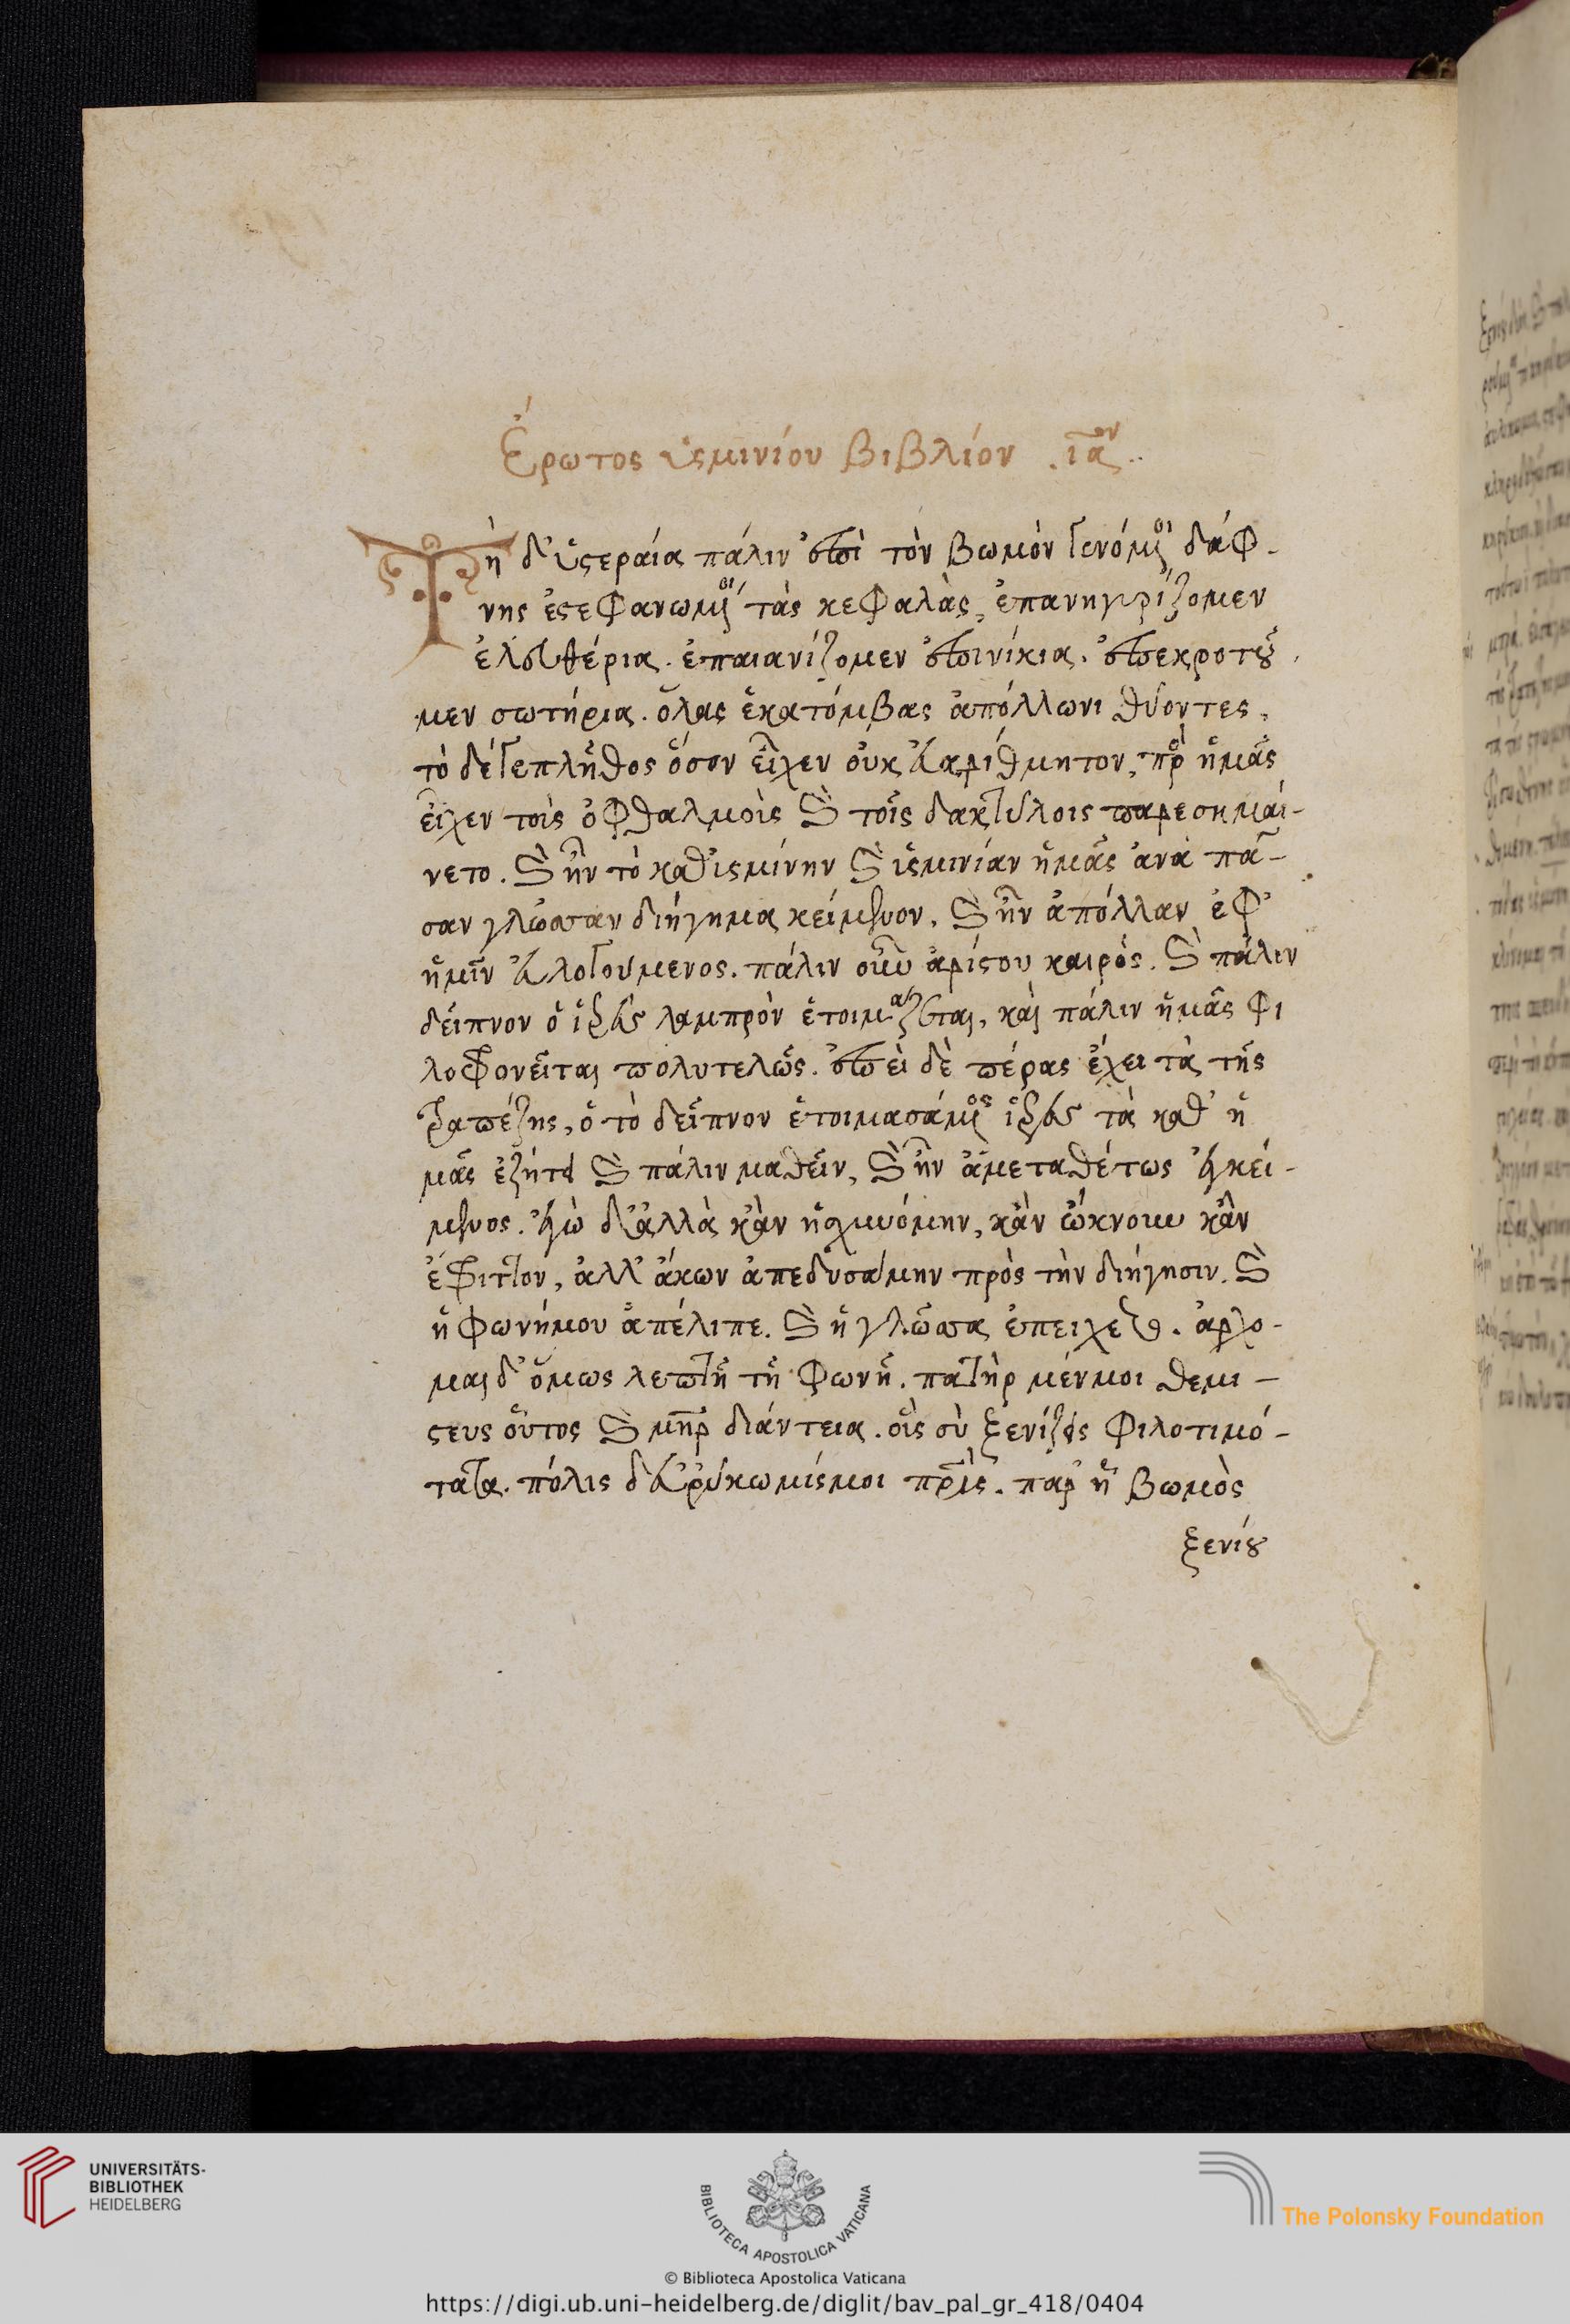 Ἔρωτος ὑσμινίου βιβλίον .ια ον..
Τῇ δ' ὑστεραία πάλιν ἐπὶ τὸν βωμὸν γενόμενοι δάφ-
νης ἐστεφανωμένοι τὰς κεφαλὰς, ἐπανηγυρίζομεν
ἐλευθέρια. ἐπαιανίζομεν ἐπινίκια. ἐπεκροτοῦ
μεν σωτήρια. ὅλας ἑκατόμβας ἀπόλλωνι θύοντες,
τὸ δέ γε πλῆθος ὅσον εἶχεν οὐκ εὐαρίθμητον, πρὸς ἡμᾶς
εἶχεν τοὶς ὀφθαλμοὶς καὶ τοῖς δακτύλοις παρεσημαί-
νετο. καὶ ἦν τὸ καθ' ὑσμίνην καὶ ὑσμινίαν ἡμᾶς ἀνὰ πᾶ-
σαν γλῶσσαν διήγημα κείμενον. καὶ ἦν ἀπόλλων ἐφ'
ἡμῖν εὐλογούμενος. πάλιν οὖν ἀρίστου καιρός. καὶ πάλιν
δεῖπνον ὁ ἱερεὺς λαμπρὸν ἑτοιμάζεται, καὶ πάλιν ἡμᾶς φι
λοφρονεῖται πολυτελῶς. ἐπεὶ δὲ πέρας ἔχει τὰ τῆς
τραπέζης, ὁ τὸ δεῖπνον ἑτοιμασάμενος ἱερεὺς τὰ καθ' ἡ
μᾶς ἐζήτει καὶ πάλιν μαθεῖν, καὶ ἦν ἀμεταθέτως ἐγκεί-
μενος. ἐγὼ δ' ἀλλὰ κἂν ἠσχυνόμην, κἂν ὤκνουν κἂν
ἔφριττον, ἀλλ' ἄκων ἀπεδυσάμην πρὸς τὴν διήγησιν. καὶ
ἡ φωνή μου ἀπέλιπε. καὶ ἡ γλῶσσα ἐπείχετο. ἄρχο-
μαι δ' ὅμως λεπτῇ τῇ φωνῇ. πατὴρ μέν μοι θεμι-
στεὺς οὗτος καὶ μηρ διάντεια. οἷς σὺ ξενίζεις φιλοτιμό-
τατα. πόλις δ' εὐρύκωμίς μοι πρὶς. παρ' ἧ βωμὸς
ξενίου
UNIVERSITÄTS-
BIBLIOTHEK
HEIDELBERG
BIBLIOTECA APOSTOLICA VATICANA
The Polonsky Foundation
© Biblioteca Apostolica Vaticana
https://digi.ub.uni-heidelberg.de/diglit/bav_pal_gr_418/0404